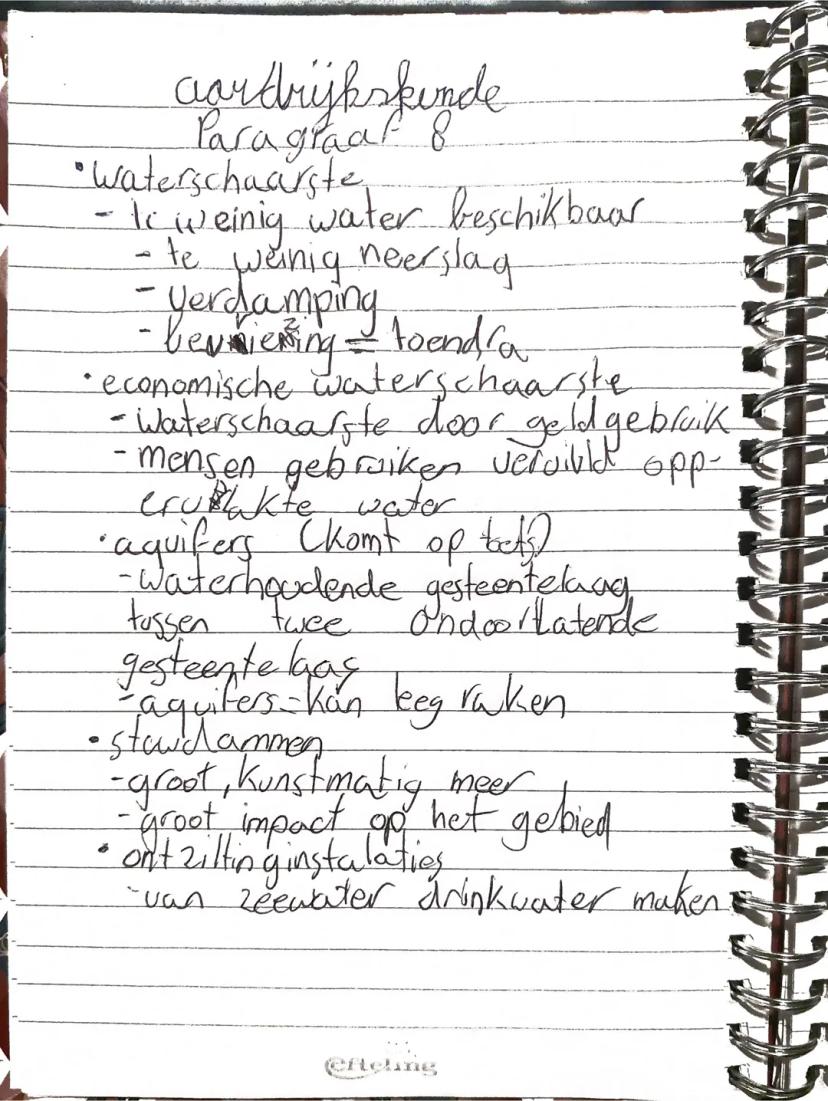 aardrijkskunde
Paragraaf 8
• waterschaarste
- te weinig water beschikbaar
- te weinig neerslag
- verdamping
- bevriezing = toendra
• economische waterschaarste
- waterschaarste door geldgebruik
- mensen gebruiken vervuild opp-
ervlakte water
• aquifers (komt op toets)
- waterhoudende gesteentelaag
tussen twee ondoorlatende
gesteentelaag
- aquifers = kan leeg raken
• stuwdammen
- groot, kunstmatig meer
- groot impact op het gebied
• ontziltinginstalaties
- van zeewater drinkwater maken
efteling